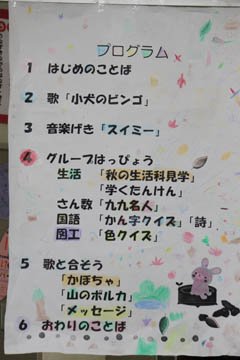 プログラム
1 はじめのことば
2 歌「小犬のビンゴ」
3 音楽げき「スイミー」
4 グループはっぴょう
生活 「秋の生活科見学」
「学くたんけん」
さん数「九九名人」
国語 「かん字クイズ」「詩」
図工 「色クイズ」
5 歌と合そう
「かぼちゃ」
「山のポルカ」
「メッセージ」
6 おわりのことば